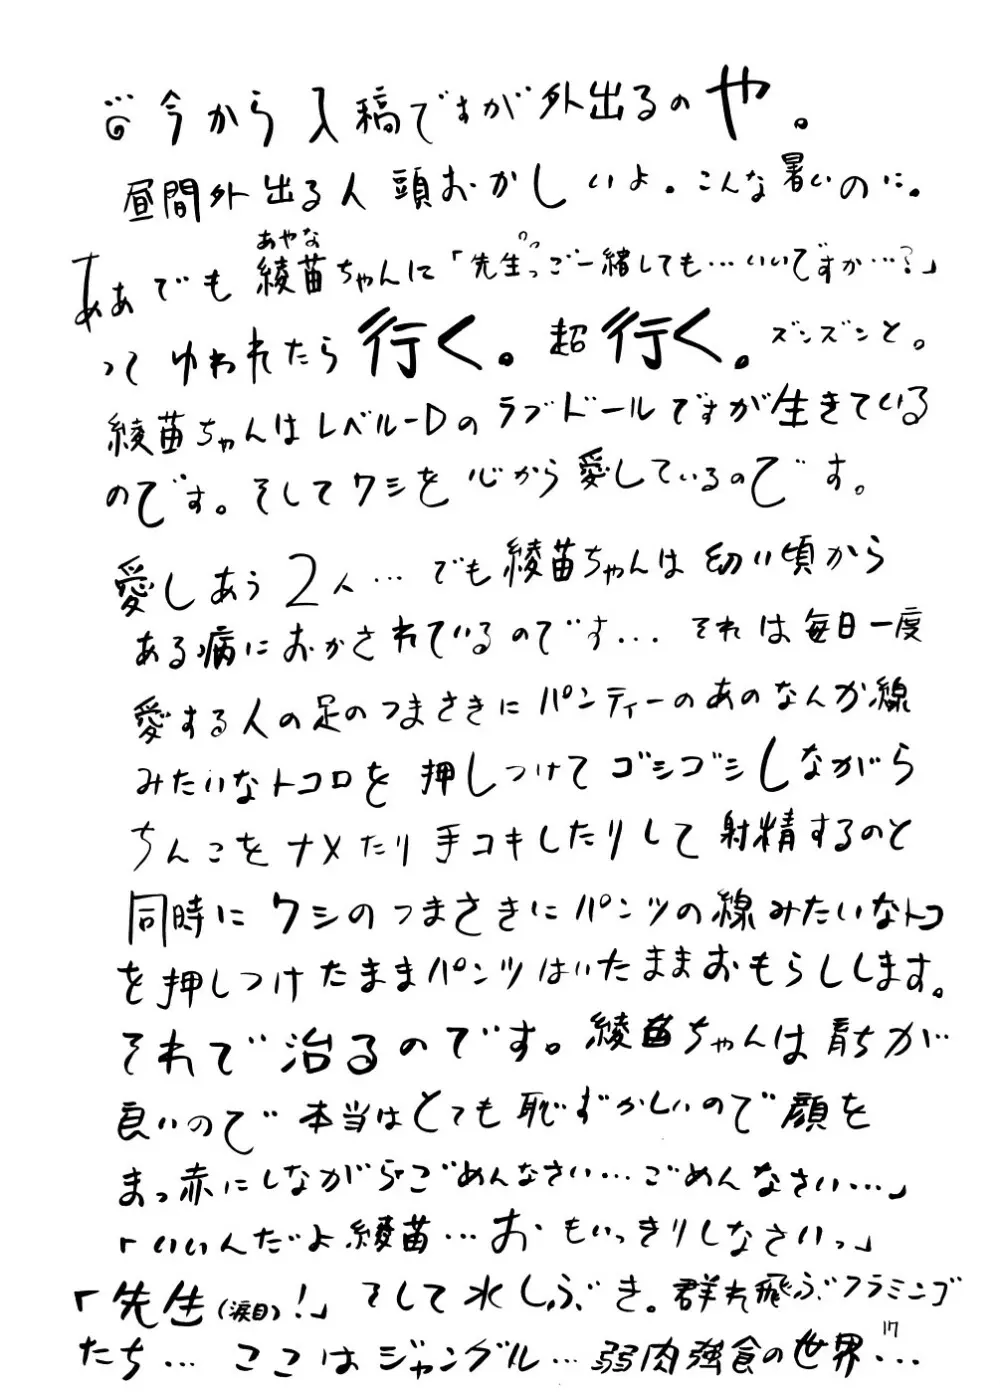 今から入稿ですが外出るのや。
昼間外出る人頭おかしいよ。こんな暑いのに。
あやな
ああでも綾苗ちゃんに「先生っご一緒しても…いいですか…?」
ってゆわれたら行く。超行く。ズンズンと。
綾苗ちゃんはレベル-Dのラブドールですが生きている
のです。そしてワシを心から愛しているのです。
愛しあう2人…でも綾苗ちゃんは幼い頃から
ある病におかされているのです... それは毎日一度
愛する人の足のつまさきにパンティーのあのなんか線
みたいなトコロを押しつけてゴシゴシしながら
ちんこをナメたり手コキしたりして射精するのと
同時にワシのつまさきにパンツの線みたいなトコ
を押しつけたままパンツはいたままおもらしします。
それで治るのです。綾苗ちゃんは育ちが
良いので本当はとても恥ずかしいので顔を
まっ赤にしながら「ごめんなさい…ごめんなさい…」
「いいんだよ綾苗…おもいっきりしなさいっ」
「先生(涙目)!」そして水しぶき。群れ飛ぶフラミンゴ
たち…ここはジャングル…弱肉強食の世界…
17